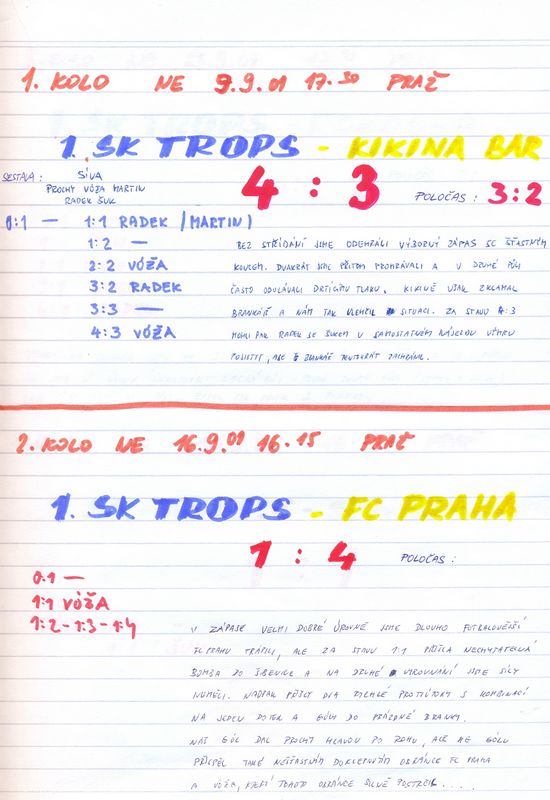 1. KOLO NE 9.9.01 17.30 PRAŽ
1. SK TROPS - KIKINA BAR
4 : 3
POLOČAS : 3:2
SESTAVA : SÍVA
PROCHY VÓŽA MARTIN
RADEK ŠUK
0:1 —
1:1 RADEK /MARTIN)
1:2 —
2:2 VÓŽA
3:2 RADEK
3:3 —
4:3 VÓŽA
BEZ STŘÍDÁNÍ JSME ODEHRÁLI VÝBORNÝ ZÁPAS SE ŠŤASTNÝM
KONCEM. DVAKRÁT JSME PŘITOM PROHRÁVALI A V DRUHÉ PŮLI
ČASTO ODOLÁVALI DRTIVÉMU TLAKU. KIKINĚ VŠAK ZKLAMAL
BRANKÁŘ A NÁM TAK ULEHČIL SITUACI. ZA STAVU 4:3
MOHL PAK RADEK SE ŠUKEM V SAMOSTATNÉM NÁJEZDU VÝHRU
POJISTIT, ALE BRANKÁŘ TENTOKRÁT ZACHRÁNIL.
2. KOLO NE 16.9.01 16.15 PRAŽ
1. SK TROPS - FC PRAHA
1 : 4
POLOČAS :
0:1 —
1:1 VÓŽA
1:2 - 1:3 - 1:4
V ZÁPASE VELMI DOBRÉ ÚROVNĚ JSME DLOUHO FOTBALOVĚJŠÍ
FC PRAHU TRÁPILI, ALE ZA STAVU 1:1 PŘIŠLA NECHYTATELNÁ
BOMBA DO ŠIBENICE A NA DRUHÉ VYROVNÁNÍ JSME SÍLY
NEMĚLI. NAOPAK PŘIŠLY DVA RYCHLÉ PROTIÚTOKY S KOMBINACÍ
NA JEDEN DOTEK A GÓLY DO PRÁZDNÉ BRANKY.
NÁŠ GÓL DAL PROCHY HLAVOU PO ROHU, ALE KE GÓLU
PŘISPĚL TAKÉ NEŠŤASTNÝM DOKLEPNUTÍM OBRÁNCE FC PRAHA
A VÓŽA, KTERÝ TOHOTO OBRÁNCE SILNĚ POSTRČIL . . . .